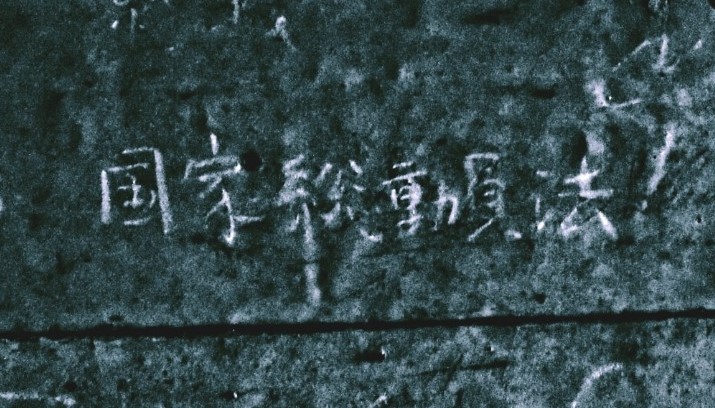 国家総動員法